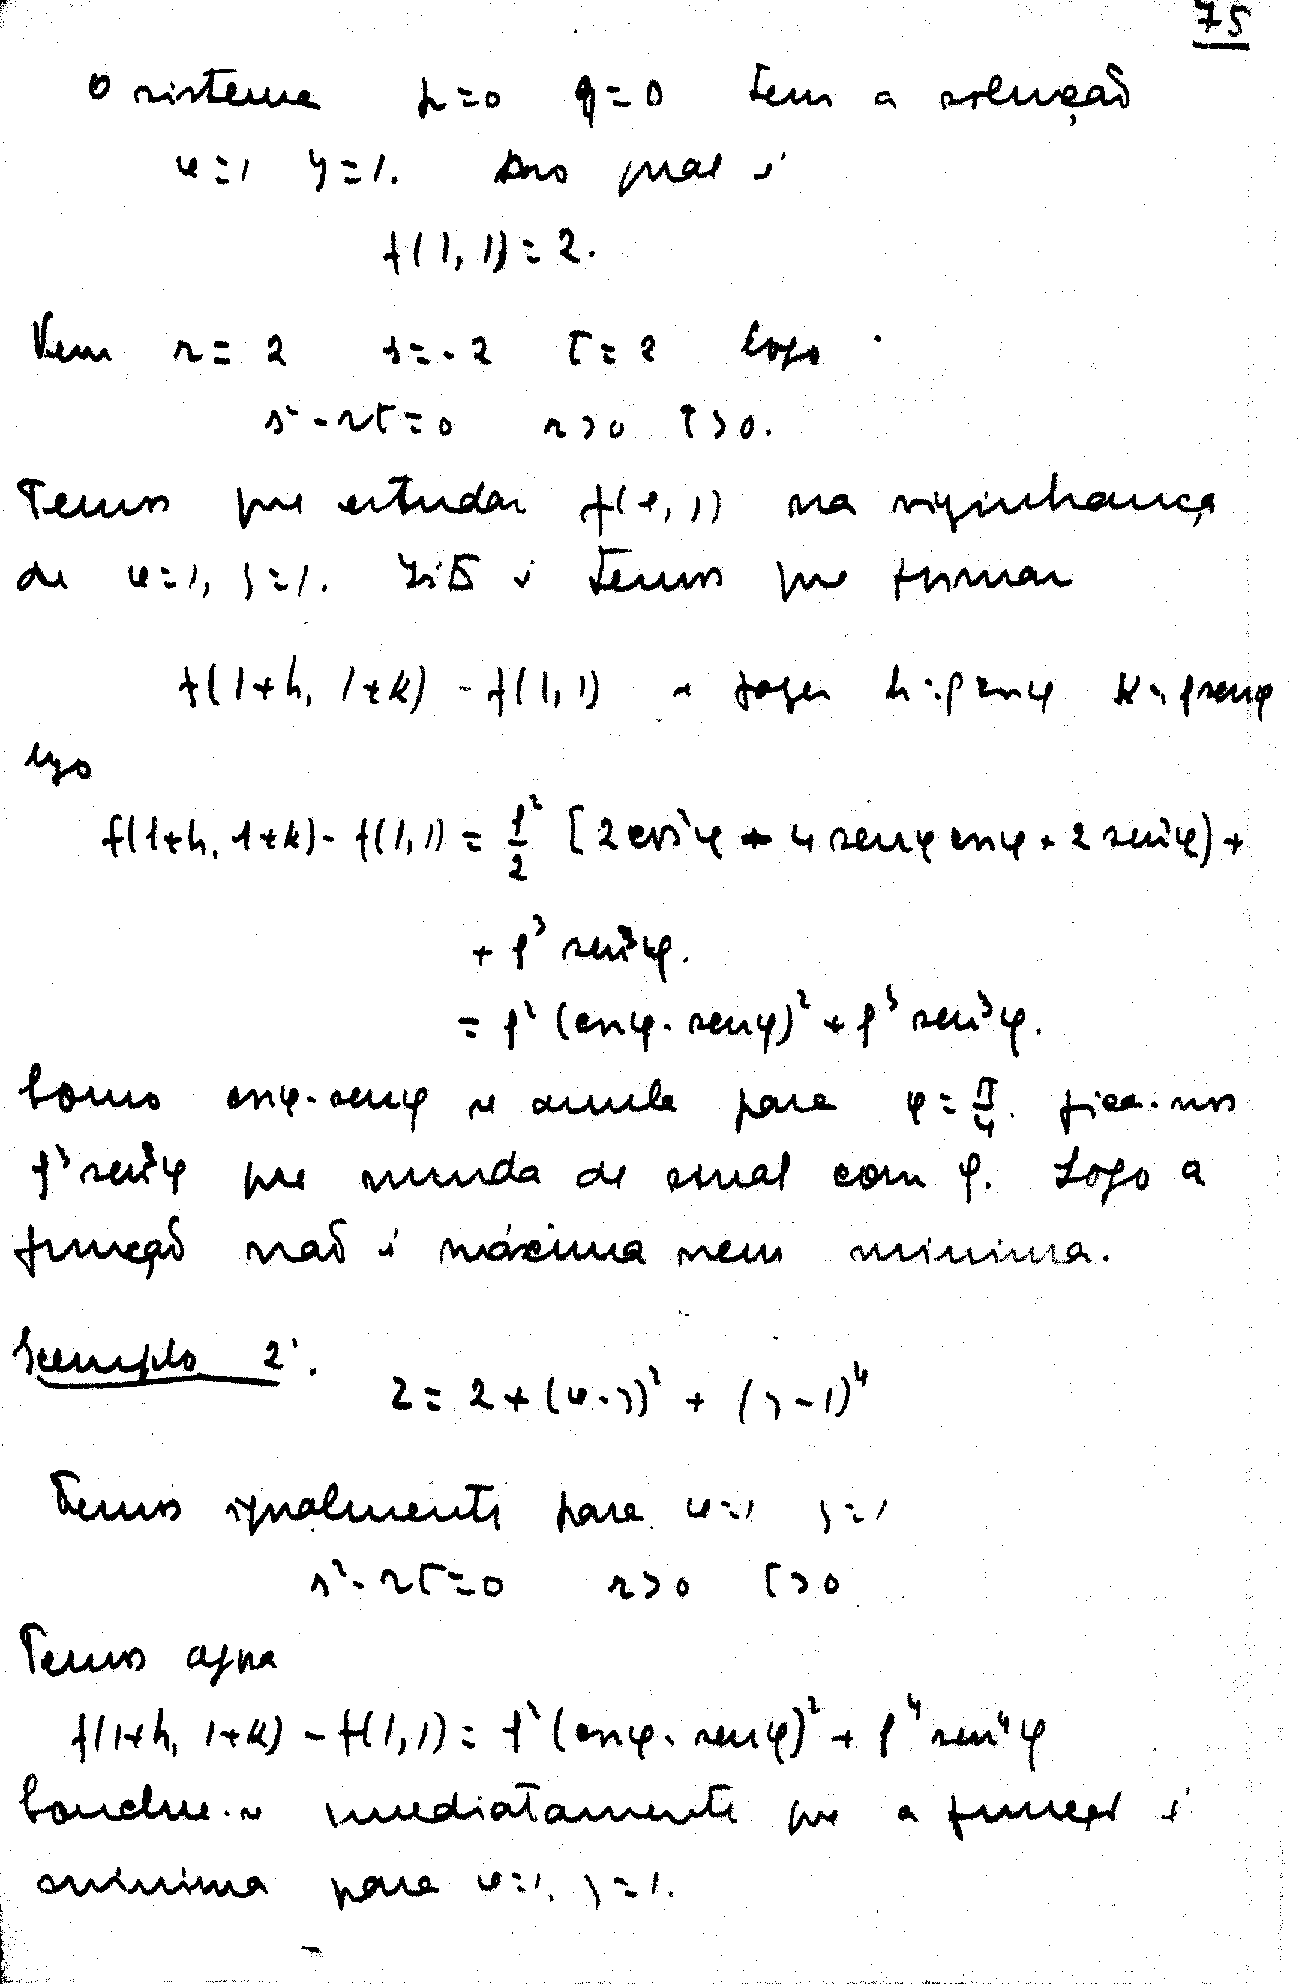 75
O sistema p=0 q=0 tem a solução
x=1 y=1. Ao qual é
f(1,1)=2.
Vem r=2 s=-2 t=2 logo
s²-rt=0 r>0 t>0.
Temos que estudar f(x,y) na vizinhança
de x=1, y=1. Isto é temos que formar
f(1+h, 1+k) - f(1,1) e fazer h=ρcosφ k=ρsenφ
logo
f(1+h, 1+k) - f(1,1) = ρ²/2 [2cos²φ - 4 senφ cosφ + 2 sen²φ] +
+ ρ³ sen³φ.
= ρ² (cosφ - senφ)² + ρ³ sen³φ.
Como cosφ-senφ se anula para φ=π/4. fica-nos
ρ³ sen³φ que muda de sinal com φ. Logo a
função não é máxima nem mínima.
Exemplo 2º.
z = 2 + (x-y)² + (y-1)⁴
Temos igualmente para x=1 y=1
s²-rt=0 r>0 t>0
Temos agora
f(1+h, 1+k) - f(1,1) = ρ² (cosφ - senφ)² + ρ⁴ sen⁴φ
Conclue-se imediatamente que a função é
mínima para x=1, y=1.